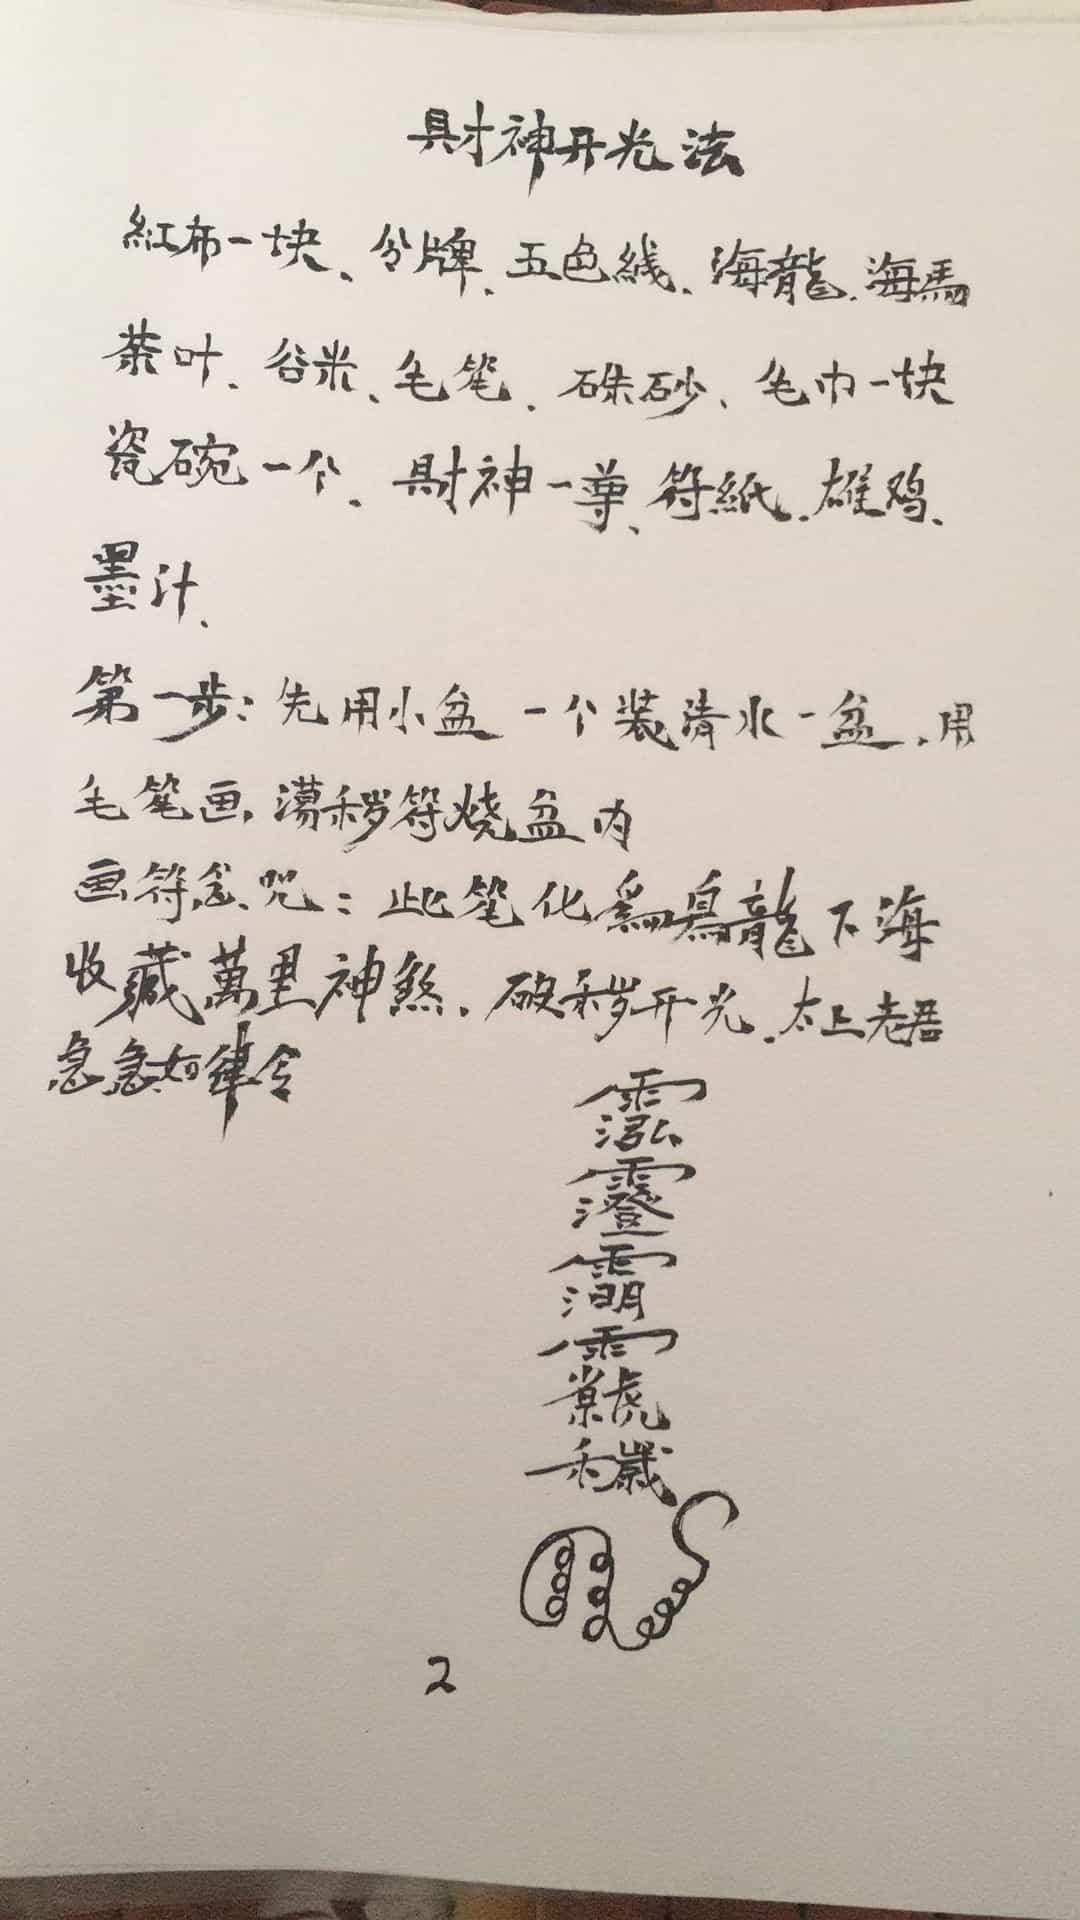 財神开光法
紅布一块、令牌、五色线、海龍、海馬
茶叶、谷米、毛笔、硃砂、毛巾一块
瓷碗一个、財神一尊、符紙、雄鸡、
墨汁、
第一步：先用小盆一个装清水一盆、用
毛笔画、蕩秽符烧盆内
画符念咒：此笔化為烏龍下海
收藏萬里神煞、破秽开光、太上老君
急急如律令
2